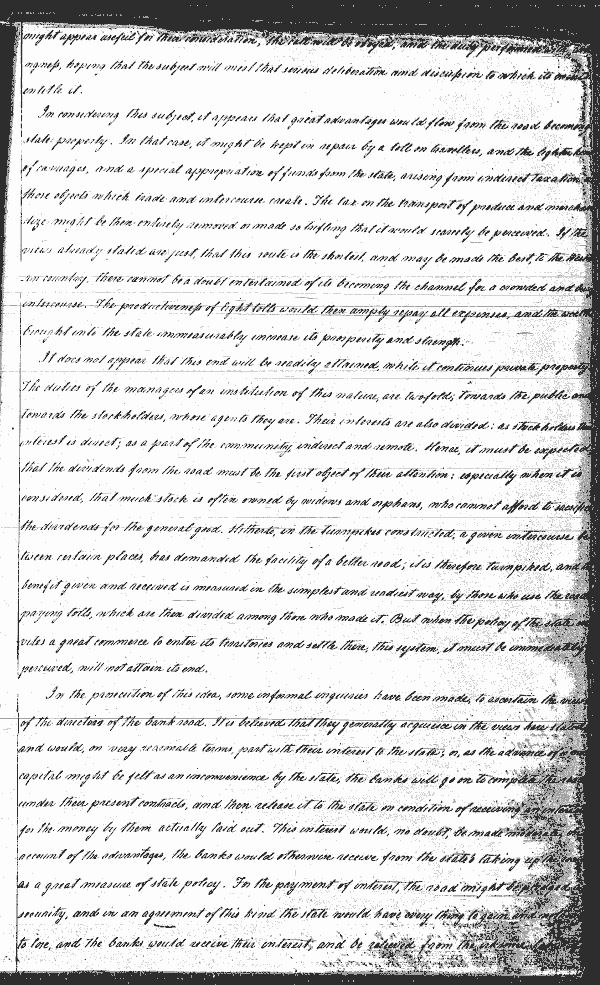 might appear useful for their consideration, the call will be obeyed, and the duty performed with
ngness, hoping that the subject will meet that serious deliberation and discussion to which its merits
entitle it.
In considering this subject, it appears that great advantages would flow from the road becoming
state property. In that case, it might be kept in repair by a toll on travellers, and the lighter kind
of carriages, and a special appropriation of funds from the state, arising from indirect taxation
those objects which trade and intercourse create. The tax on the transport of produce and merchan
dize might be then entirely removed or made so trifling that it would scarcely be perceived. If the
views already stated are just, that this route is the shortest, and may be made the best, to the West
ern country, there cannot be a doubt entertained of its becoming the channel for a crowded and busy
intercourse. The productiveness of light tolls would then amply repay all expenses, and the wealth
brought into the state immeasurably increase its prosperity and strength.
It does not appear that this end will be readily attained, while it continues private property.
The duties of the managers of an institution of this nature, are twofold; towards the public and
towards the stockholders, whose agents they are. Their interests are also divided: as stockholders the
interest is direct; as a part of the community, indirect and remote. Hence, it must be expected
that the dividends from the road must be the first object of their attention; especially when it is
considered, that much stock is often owned by widows and orphans, who cannot afford to sacrifice
the dividends for the general good. Hitherto, in the turnpikes constructed, a given intercourse be
tween certain places, has demanded the facility of a better road; it is therefore turnpiked, and
benefit given and received is measured in the simplest and readiest way, by those who use the road
paying tolls, which are then divided among them who made it. But when the policy of the state in
vites a great commerce to enter its territories and settle there, this system, it must be immediately
perceived, will not attain its end.
In the prosecution of this idea, some informal inquiries have been made, to ascertain the views
of the directors of the bank road. It is believed that they generally acquiesce in the views here stated
and would, on very reasonable terms, part with their interest to the state; or, as the advance of
capital might be felt as an inconvenience by the state, the banks will go on to complete the road
under their present contracts, and then release it to the state on condition of receiving an interest
for the money by them actually laid out. This interest would, no doubt, be made moderate, on
account of the advantages, the banks would otherwise receive from the state's taking up the
as a great measure of state policy. In the payment of interest, the road might be pledged
security, and in an agreement of this kind the state would have every thing to gain and
to lose, and the banks would receive their interest, and be relieved from the